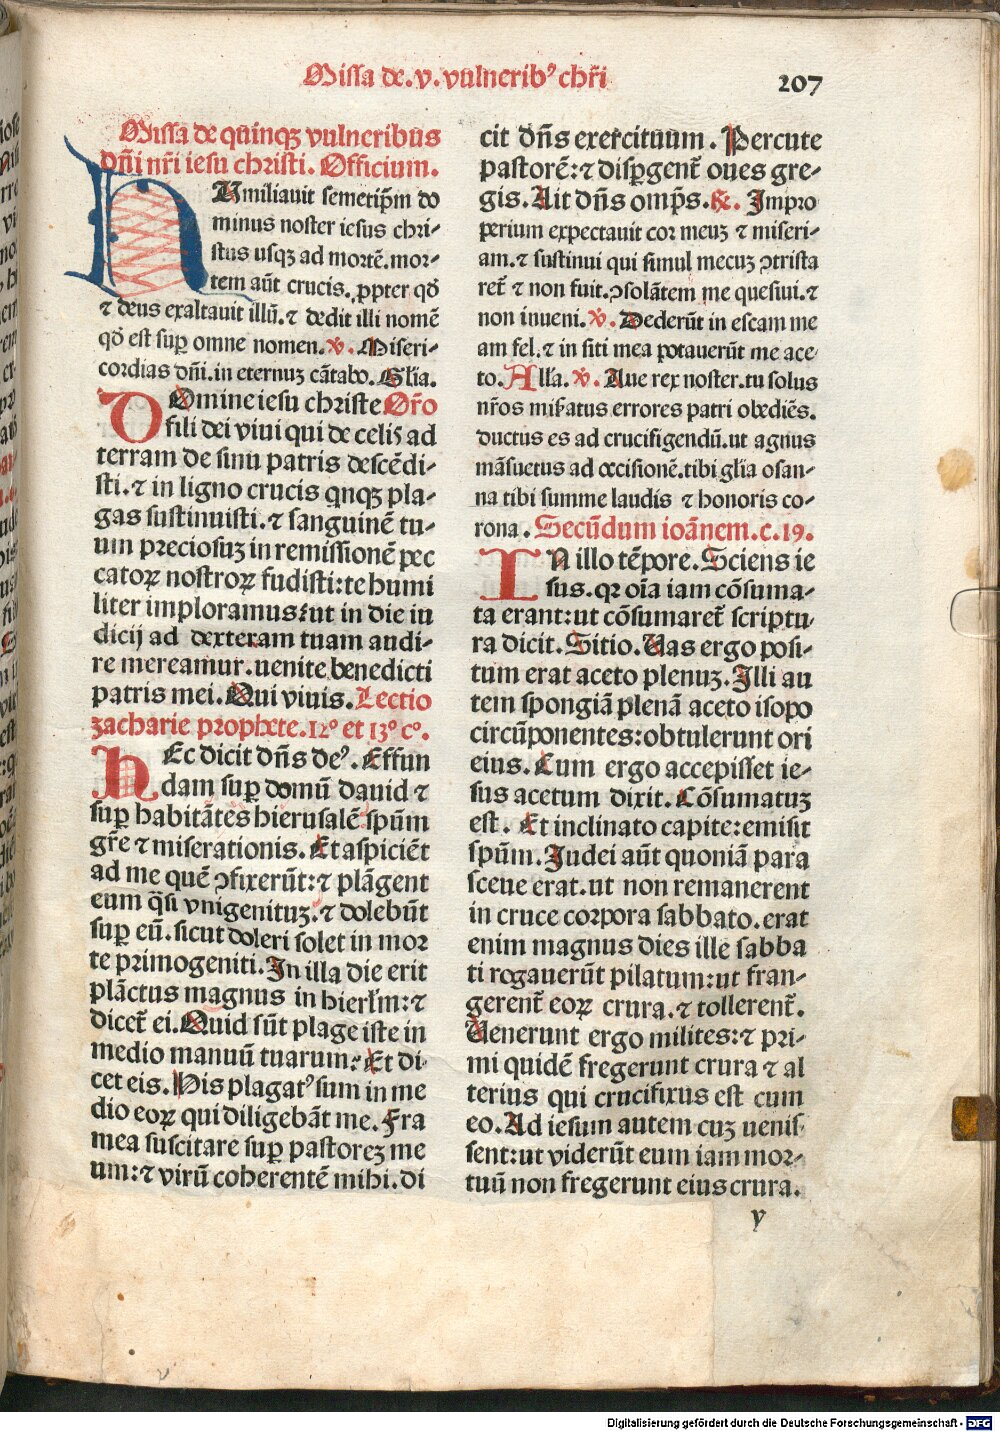 Missa de .v. vulneribꝰ chr̄i
207
Missa de quinqꝫ vulneribus
dn̄i nr̄i iesu christi. Officium.
HUmiliauit semetip̄m do
minus noster iesus chri-
stus usqꝫ ad mortē. mor-
tem aūt crucis. ꝓpter qḋ
⁊ deus exaltauit illū. ⁊ dedit illi nomē
qḋ est suꝑ omne nomen. v̇. Miseri-
cordias dn̄i. in eternuꝫ cātabo. Gl̄ia.
DOmine iesu christe Or̄o
fili dei viui qui de celis ad
terram de sinu patris descēdi-
sti. ⁊ in ligno crucis qnqꝫ pla-
gas sustinuisti. ⁊ sanguinē tu-
um preciosuꝫ in remissionē pec
catoꝝ nostroꝝ fudisti: te humi
liter imploramus: ut in die iu
dicij ad dexteram tuam audi-
re mereamur. uenite benedicti
patris mei. Qui viuis. Lectio
zacharie prophete. 12° et 13° c°.
HEc dicit dn̄s deꝰ. Effun
dam suꝑ domū dauid ⁊
suꝑ habitātes hierusalē sp̄um
gr̄e ⁊ miserationis. Et aspiciēt
ad me quē ꝯfixerūt: ⁊ plāgent
eum q̄si vnigenituꝫ. ⁊ dolebūt
suꝑ eū. sicut doleri solet in mor
te primogeniti. In illa die erit
plāctus magnus in hierlm̄: ⁊
dicet̄ ei. Quid sūt plage iste in
medio manuū tuarum: Et di-
cet eis. His plagatꝰ sum in me
dio eoꝝ qui diligebāt me. Fra
mea suscitare suꝑ pastoreꝫ me
um: ⁊ virū coherentē mihi. di
cit dn̄s exercituum. Percute
pastorē: ⁊ disꝑgent̄ oues gre-
gis. Ait dn̄s omp̄s. ℞. Impro
perium expectauit cor meuꝫ ⁊ miseri-
am. ⁊ sustinui qui simul mecuꝫ ꝯtrista
ret̄ ⁊ non fuit. ꝯsolātem me quesiui. ⁊
non inueni. v̇. Dederūt in escam me
am fel. ⁊ in siti mea potauerūt me ace
to. All'a. v̇. Aue rex noster. tu solus
nr̄os mis̄atus errores patri obediēs.
ductus es ad crucifigendū. ut agnus
māsuetus ad occisionē. tibi gl̄ia osan-
na tibi summe laudis ⁊ honoris co-
rona. Secūdum ioānem. c. 19.
IN illo tēpore. Sciens ie
sus. qꝛ oīa iam cōsuma-
ta erant: ut cōsumaret̄ scriptu-
ra dicit. Sitio. Uas ergo posi-
tum erat aceto plenuꝫ. Illi au
tem spongiā plenā aceto isopo
circūponentes: obtulerunt ori
eius. Cum ergo accepisset ie-
sus acetum dixit. Cōsumatuꝫ
est. Et inclinato capite: emisit
sp̄um. Iudei aūt quoniā para
sceue erat. ut non remanerent
in cruce corpora sabbato. erat
enim magnus dies ille sabba
ti rogauerūt pilatum: ut fran-
gerent̄ eoꝝ crura. ⁊ tollerent̄.
Uenerunt ergo milites: ⁊ pri-
mi quidē fregerunt crura ⁊ al
terius qui crucifixus est cum
eo. Ad iesum autem cuꝫ uenis-
sent: ut viderūt eum iam mor-
tuū non fregerunt eius crura.
y
Digitalisierung gefördert durch die Deutsche Forschungsgemeinschaft - DFG